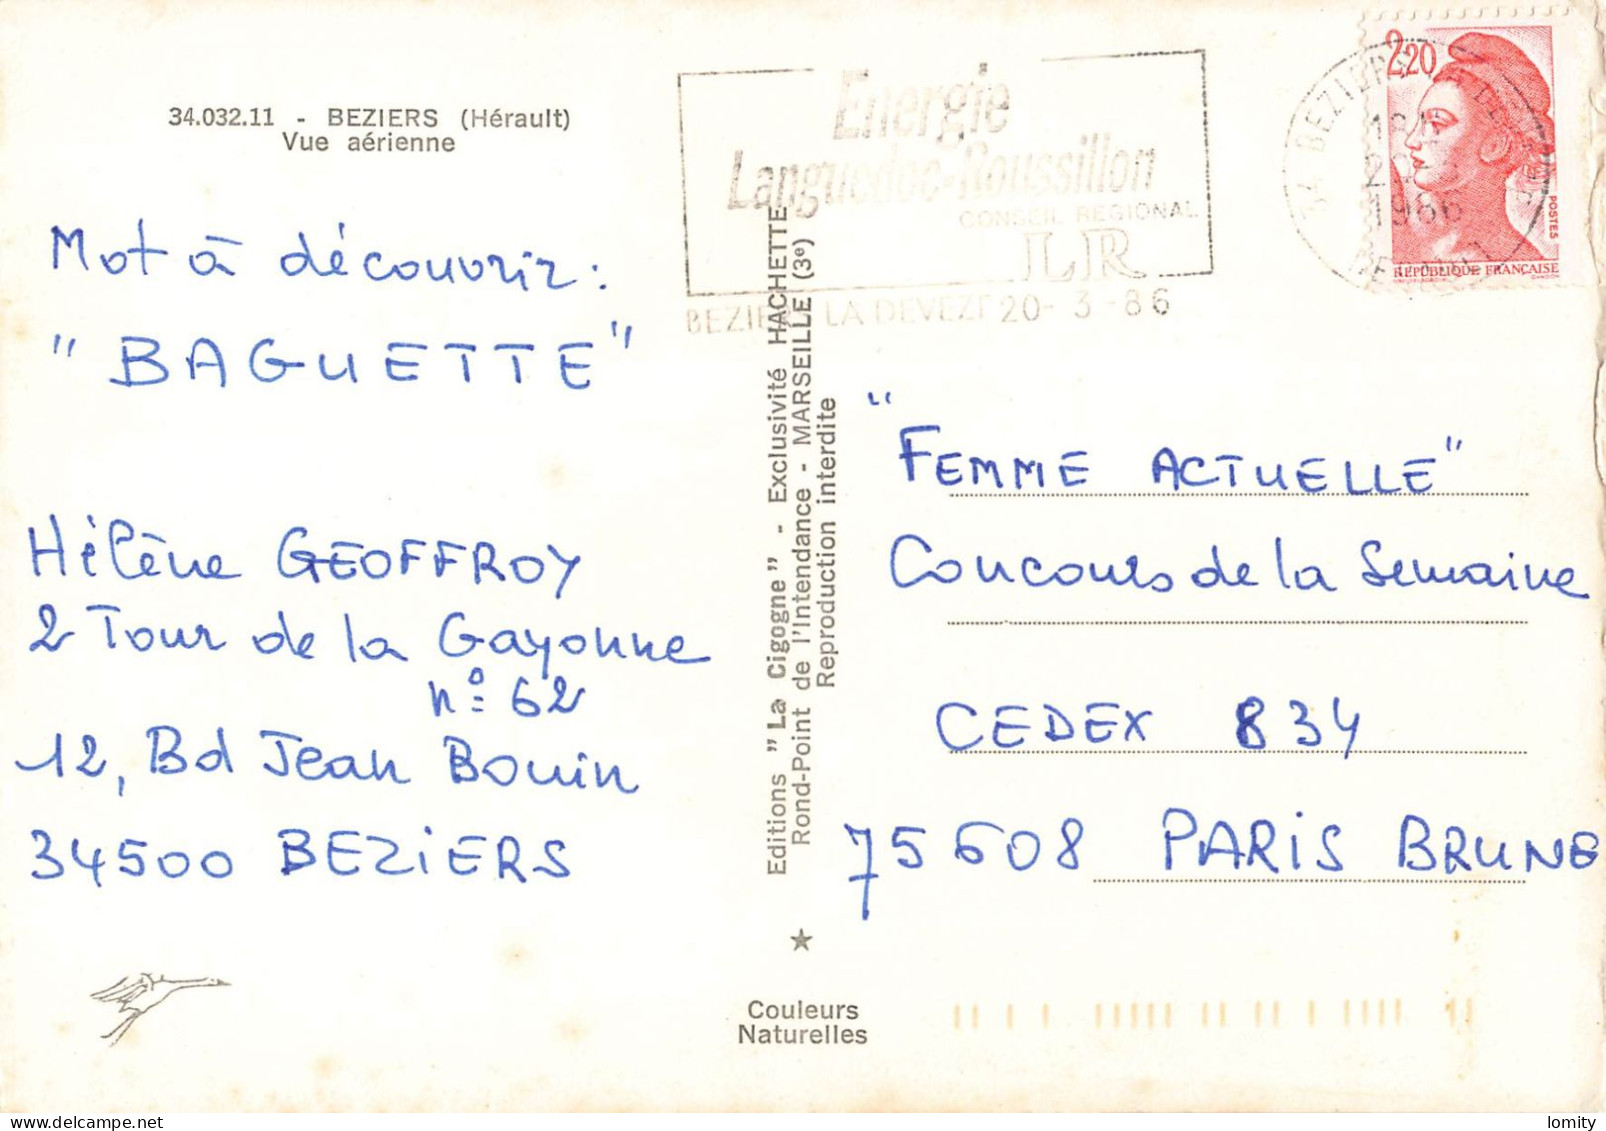 34.032.11 - BEZIERS (Hérault)
Vue aérienne
Mot à découvrir :
" BAGUETTE "
Hélène GEOFFROY
2 Tour de la Gayonne
n° 62
12, Bd Jean Bouin
34500 BEZIERS
Editions "La Cigogne" - Exclusivité HACHETTE
Rond-Point de l'Intendance - MARSEILLE (3e)
Reproduction interdite
Couleurs
Naturelles
Energie
Languedoc-Roussillon
CONSEIL REGIONAL
LR
BEZIERS LA DEVEZE 20- 3 -86
34 BEZIERS
1986
2,20
POSTES
REPUBLIQUE FRANÇAISE
" FEMME ACTUELLE "
Concours de la Semaine
CEDEX 834
75608 PARIS BRUNE
lomity